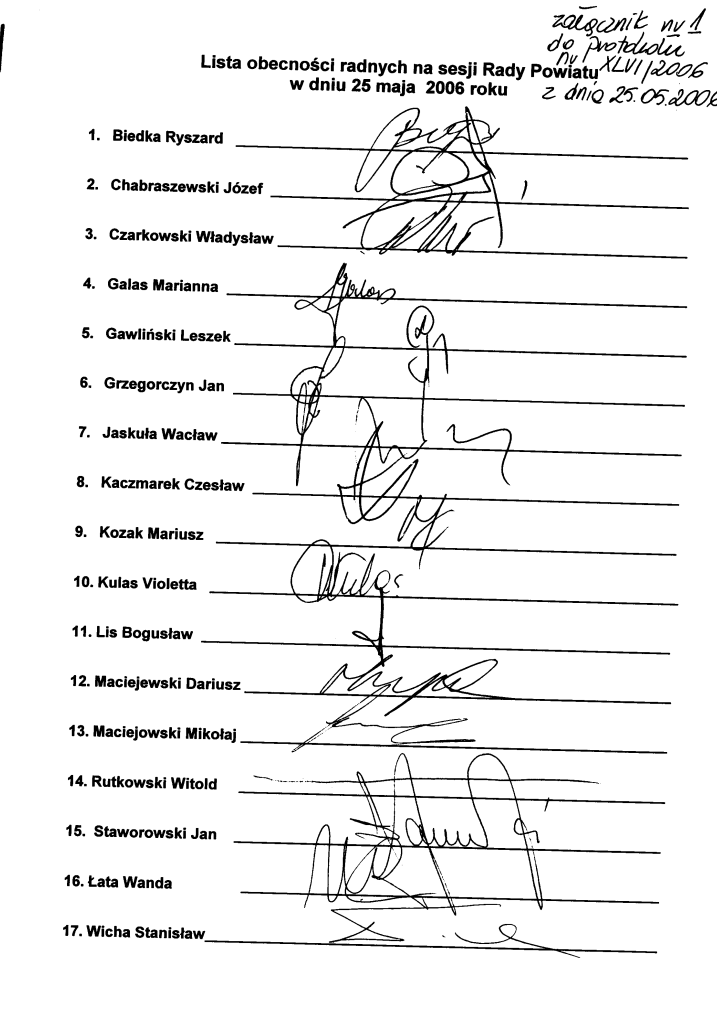 załącznik nr 1
do protokołu
nr XLVI/2006
z dnia 25.05.2006
Lista obecności radnych na sesji Rady Powiatu
w dniu 25 maja 2006 roku
1. Biedka Ryszard
2. Chabraszewski Józef
3. Czarkowski Władysław
4. Galas Marianna
5. Gawliński Leszek
6. Grzegorczyn Jan
7. Jaskuła Wacław
8. Kaczmarek Czesław
9. Kozak Mariusz
10. Kulas Violetta
11. Lis Bogusław
12. Maciejewski Dariusz
13. Maciejowski Mikołaj
14. Rutkowski Witold
15. Staworowski Jan
16. Łata Wanda
17. Wicha Stanisław